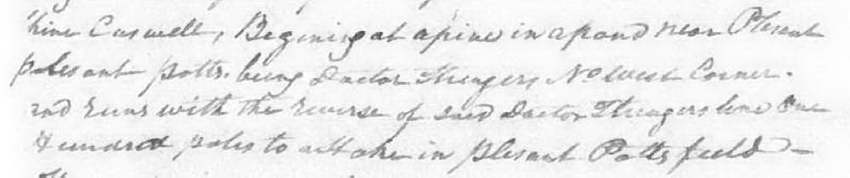 hine Caswell, Begining at a pine in a pond near Plesent
plesant potts. being Doctor Stringers No west Corner.
and runs with the reverse of said Doctor Stringers line One
Hundred poles to a stake in plesant Potts field –